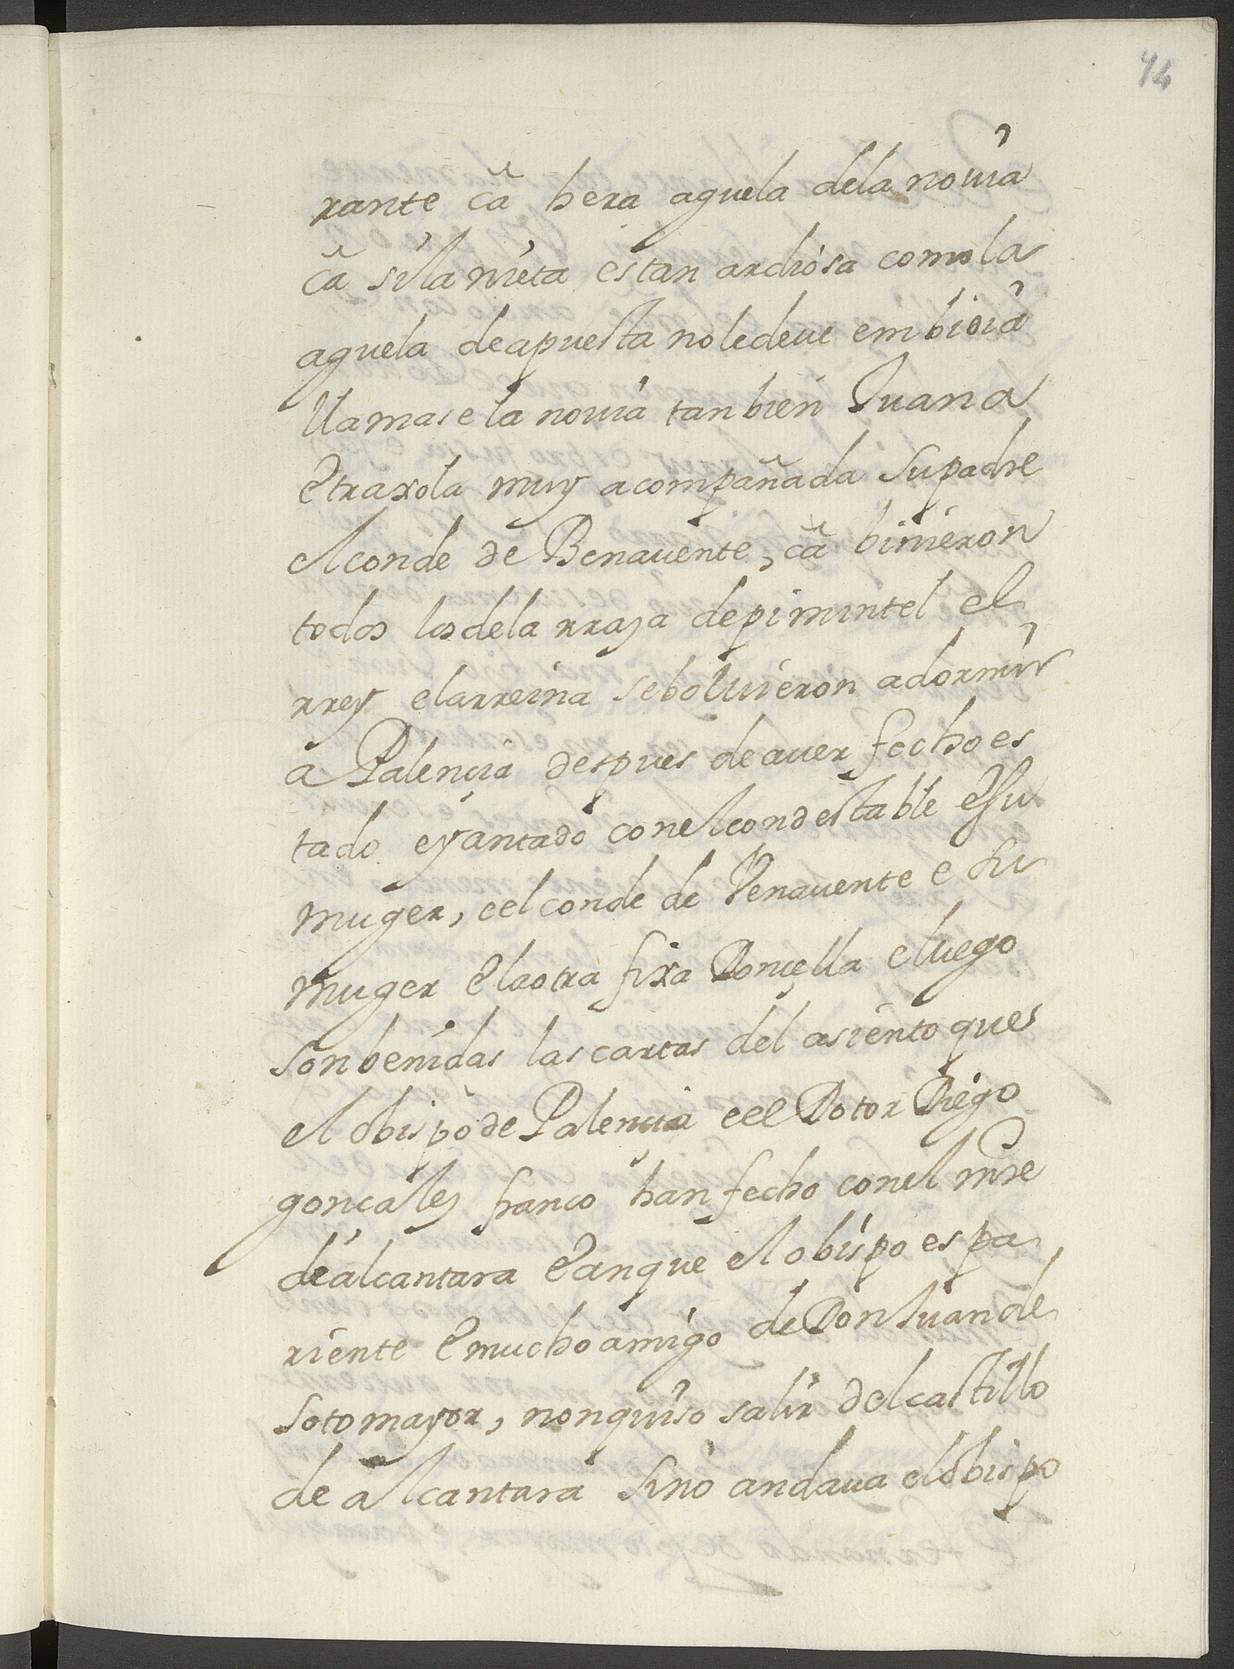 94
rante ca hera aguela dela nouia
ca sila nieta es tan ardiosa como la
aguela deapuesta noledeue embidia
llamase la nouia tanbien Juana
e traxola muy acompañada su padre
el conde de Benauente, ca binieron
todos los dela rraza depimintel el
rrey elarreina seboluieron adormir
a Palençia despues deauer fecho es
tado eyantado conel condestable e su
muger, eel conde de Venauente e su
muger e la otra fixa Donçella eluego
son benidas las cartas del asiento ques
el obispo de Palençia eel Dotor Diego
gonçalez franco han fecho conel mre
de alcantara e anque el obispo es pa
riente e mucho amigo de Don Juan de
sotomayor, nonquiso salir del castillo
de alcantara sino andaua el obispo